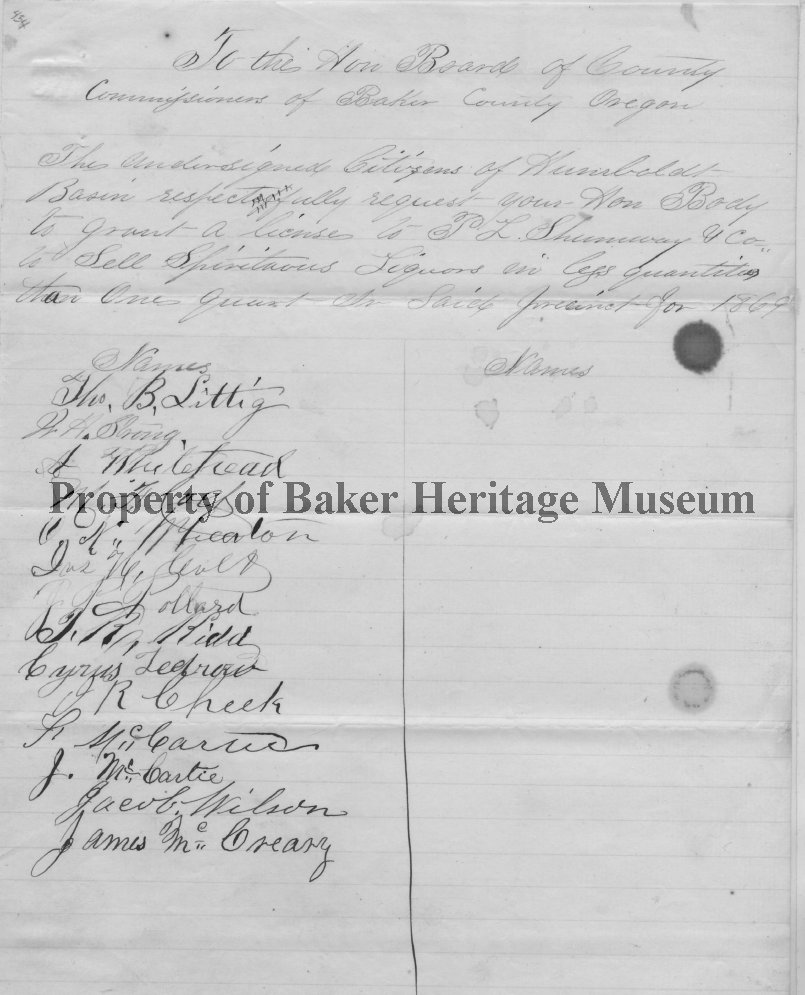 454
To the Hon Board of County
Commissioners of Baker County Oregon
The undersigned Citizens of Humboldt
Basin respectfully request your Hon Body
to grant a license to P. L. Shumway & Co.
to Sell Spirituous Liquors in less quantities
than One quart in Said precinct for 1869
Names
Names
Tho. B. Littig
W. H. Strong
A Whitehead
Property of Baker Heritage Museum
C. N. Wheaton
Jos H.
Pollard
T. R. Kidd
Cyrus Fedrow
J R Cheek
McCartie
J. McCartie
Jacob Wilson
James McCreary